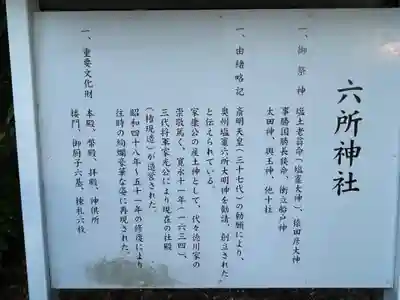 六所神社
一、御祭神 塩土老翁命(塩竈大神)、猿田彦大神
事勝国勝長狭命、衝立船戸神
太田神、興玉神、他十柱
一、由緒略記
斎明天皇(三十七代)の勅願により、
奥州塩竈六所大明神を勧請、創立された
と伝えられている。
家康公の産土神として、代々徳川家の
崇敬篤く、寛永十一年(一六三四)、
三代将軍家光公により現在の社殿
(権現造)が造営された。
昭和四十八年〜五十一年の修復により
往時の絢爛豪華な姿に再現された。
一、重要文化財
本殿、幣殿、拝殿、神供所
楼門、御厨子六基、棟札六枚